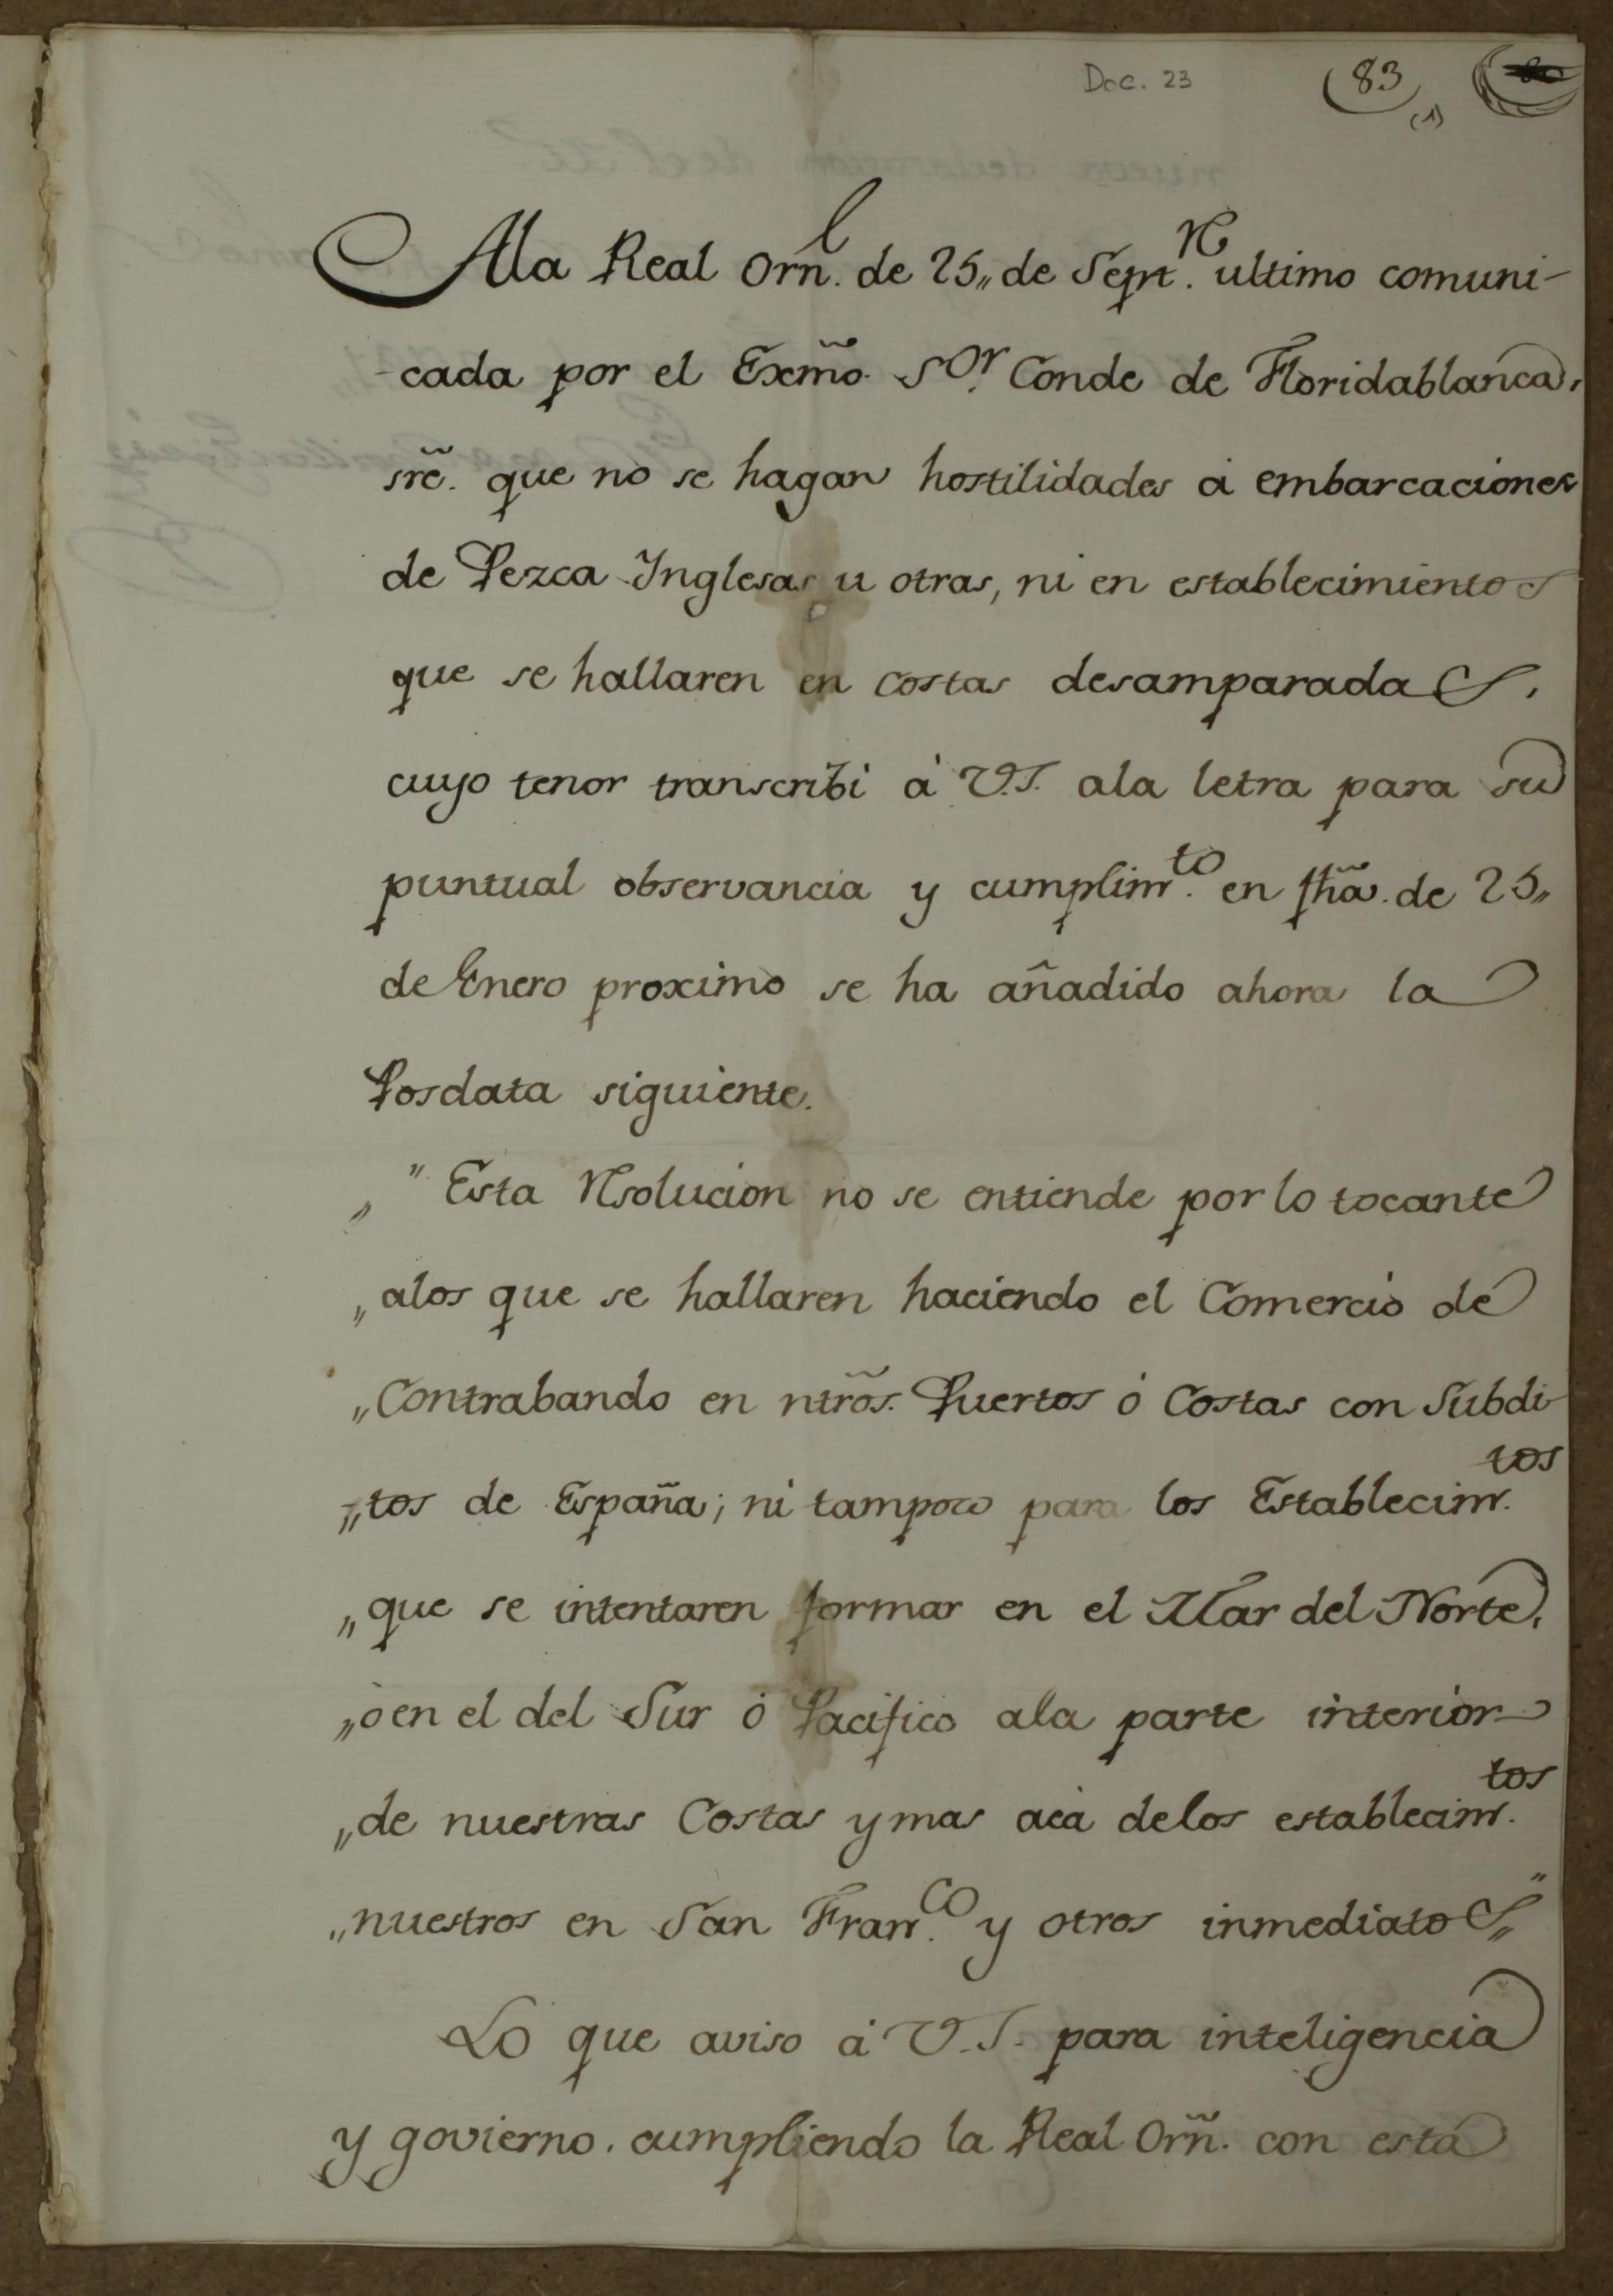 Doc. 23 83 (1)
Ala Real Orn. de 25,, de Sept.re ultimo comuni-
cada por el Exm̃o. Sor. Conde de Floridablanca,
sr̃e. que no se hagan hostilidades á embarcaciones
de Pezca Inglesas u otras, ni en establecimientos
que se hallaren en costas desamparadas,
cuyo tenor transcribi á V.S. ala letra para su
puntual observancia y cumplim.to en fh̃a. de 25,,
de Enero proximo se ha añadido ahora la
Posdata siguiente.
,, " Esta Resolucion no se entiende por lo tocante
,, alos que se hallaren haciendo el Comercio de
,, Contrabando en ntr̃os. Puertos ó Costas con Subdi-
,, tos de España; ni tampoco para los Establecim.tos
,, que se intentaren formar en el Mar del Norte,
,, ò en el del Sur ó Pacifico ala parte interior
,, de nuestras Costas y mas acá delos establecim.tos
,, nuestros en San Fran.co y otros inmediatos,, "
Lo que aviso á V.S. para inteligencia
y govierno, cumpliendo la Real Orñ. con esta